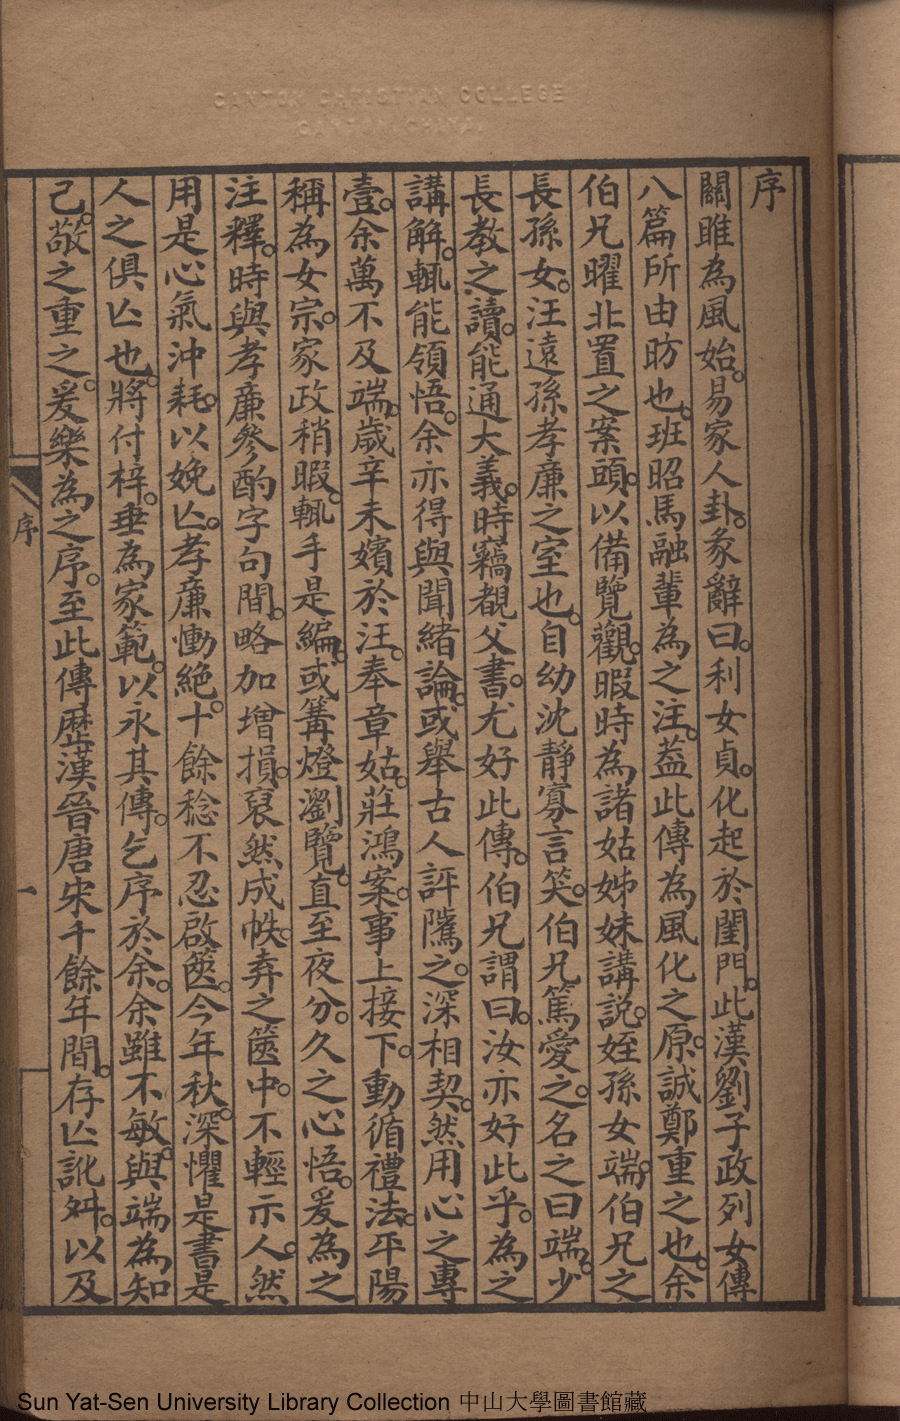 CANTON CHRISTIAN COLLEGE
CANTON, CHINA.
序
關雎為風始。易家人卦。彖辭曰。利女貞。化起於閨門。此漢劉子政列女傳
八篇所由昉也。班昭馬融輩為之注。葢此傳為風化之原。誠鄭重之也。余
伯兄曜北置之案頭。以備覽觀。暇時為諸姑姊妹講說。姪孫女端。伯兄之
長孫女。汪遠孫孝廉之室也。自幼沈靜寡言笑。伯兄篤愛之。名之曰端。少
長教之讀。能通大義。時竊覩父書。尤好此傳。伯兄謂曰。汝亦好此乎。為之
講解。輒能領悟。余亦得與聞緒論。或舉古人評隲之。深相契。然用心之專
壹。余萬不及端。歲辛未嬪於汪。奉章姑。莊鴻案。事上接下。動循禮法。平陽
稱為女宗。家政稍暇。輒手是編。或篝燈瀏覽。直至夜分。久之心悟。爰為之
注釋。時與孝廉參酌字句間。略加增損。裒然成帙。弆之篋中。不輕示人。然
用是心氣沖耗。以娩亾。孝廉慟絕。十餘稔不忍啟篋。今年秋。深懼是書是
人之俱亾也。將付梓。垂為家範。以永其傳。乞序於余。余雖不敏。與端為知
己。敬之重之。爰樂為之序。至此傳歷漢晉唐宋千餘年間。存亾訛舛。以及
序
一
Sun Yat-Sen University Library Collection 中山大學圖書館藏